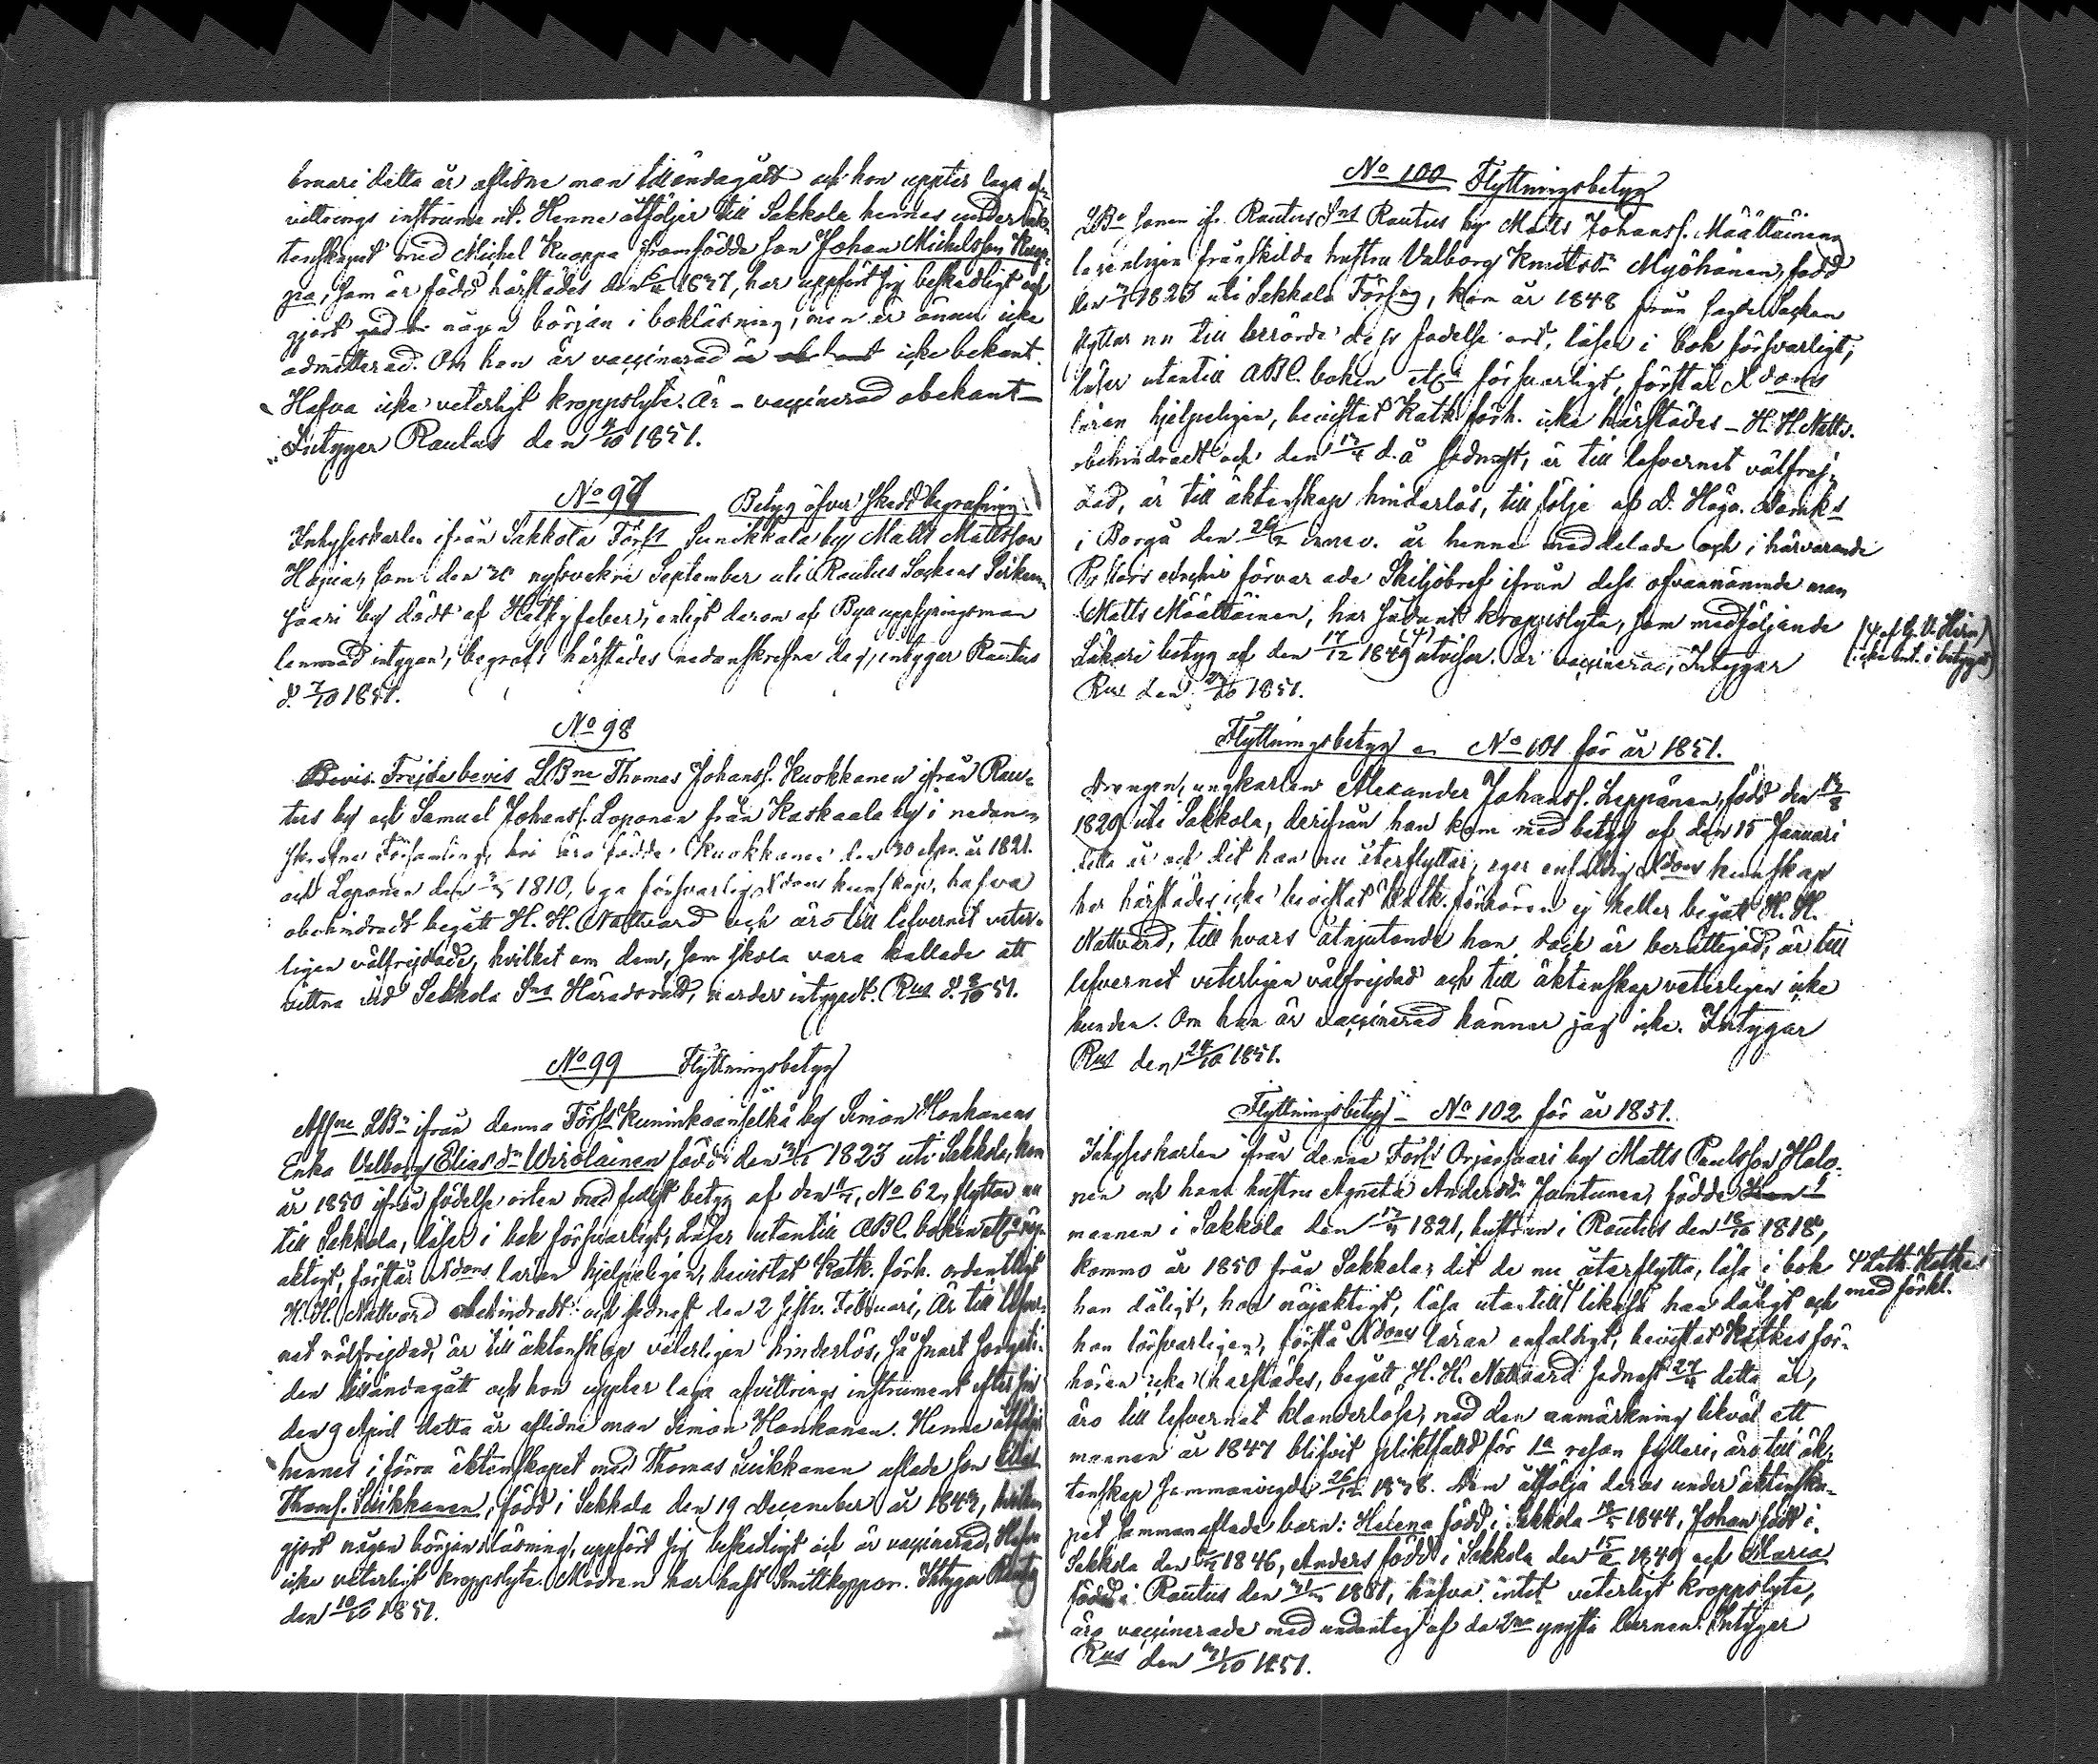 bruari detta år aflidne man tilländagått och hon uppter laga af-
vittrings instrument. Henne åtföljer till Sakkola hennes under äk-
tenskapet med Michel Kuoppa framfödde son Johan Michelsson Kuop-
pa, som är född härstädes den 1847, har uppfört sig beskedligt och
gjort god b. någon början i bokläsning, men är ännu icke
admitterad. Om han är vaccinerad är icke bekant.
Hafva icke veterligt kroppslyte. Är - vaccinerad obekant -
Intygar Rautus den 4/10 1851.
No 97 Betyg öfver skedd begrafning
Inhyseskarlen ifrån Sakkola Förs. Sunikkala by Matts Mattsson
Hapia, som den 30 nyssvekne September uti Rautus Sockens
saari by dödt af Hetsig feber, enligt derom af Bya uppsyningsman
lemnad intygan, begrofs härstädes nedanskrefne dag, intygar Rautus
d. 7/10 1851.
No 98
Bevis. Frejdebevis LBne Thomas Johanss. Kuokkanen ifrån Rau-
tus by och Samuel Johanss. Loponen från Kaskaala by i nedan-
skrefne Församling, äro födde: Kuokkanen den 30 Apr. år 1821.
och Loponen den 1810, ega försvarlig Xdoms kunskap, hafva
obehindradt begått H. H. Nattvard och äro till lefvernet veter-
ligen välfrejdade, hvilket om dem, som skola vara kallade att
vittna vid Sakkola Sns Häradsrätt, varder intygadt. Rus d. 8/10 51.
No 99 Flyttningsbetyg
Aflne LBn ifrån denna Förs. Kuninkaanselkä by Simon Honkanens
Enka Valborg Eliasdr Wirolainen född den 1823 uti Sakkola, kom
år 1850 ifrån födelse orten med betyg af den No 62, flyttar nu
till Sakkola, läser i bok försvarligt, läser utantill ABC. boken
aktigt, förstår Xdoms läran hjelpeligen, bevistat Katk. förh. ordentligt
H. H. Nattvard obehindradt och sednast den 2 sistv. Februari, är till lefver-
net välfrejdad, är till äktenskap veterligen hinderlös, så snart sorgeti-
den tilländagått och hon uppter laga afvittrings instrument efter sin
den 9 April detta år aflidne man Simon Honkanen. Henne åtföljer
hennes i förra äktenskapet med Thomas Suikkanen aflade son Elias
Thoms. Suikkanen, född i Sakkola den 19 December år 1843, hvilken
gjort någon början i läsning, uppfört sig beskedligt och är vaccinerad, Hafva
icke veterligt kroppslyte. Modren har haft Smittkoppor. Intygar Rautus
den 10/10 1851.
No 100 Flyttningsbetyg
LBn sonen ifr. Rautus Sns Rautus by Matts Johanss. Määttäinens
lagenligen frånskilda hustru Valborg Knutsdr Myöhänen, född
den 1823 uti Sakkola Förs., kom år 1848 från sagde Socken
flyttar nu till berörde dess födelse ort, läser i bok försvarligt,
läser utantill ABC. boken försvarligt, förstår Xdoms
läran hjelpeligen, bevistat Katk. förh. icke härstädes - H. H. Nattv.
obehindradt och den d. å sednast, är till lefvernet välfrej-
dad, är till äktenskap hinderlös, till följe af D. Högv. Domk.
i Borgå den innev. år henne meddelade och i härvarande
förvarade Skiljobref ifrån dess ofvannämnde man
Matts Määttäinen, har sådant kroppslyte, som medföljande
Läkare betyg af den 17/12 1849 (Ψ) utvisar. Är vaccinerad, Intygar
Rus den 1851.
(Ψ af G. A. Hirn)
(icke int. i betyget)
Flyttningsbetyg No 101 för år 1851.
Drengen, ungkarlen Alexander Johanss. Leppänen, född den 13/8
1829 uti Sakkola, derifrån han kom med betyg af den 15 Januari
detta år och dit han nu återflyttar, eger enfaldig Xdoms kunskap
har härstädes icke bevistat Katk. förhören ej heller begått H. H.
Nattvard, till hvars åtnjutande han dock är berättigad, är till
lefvernet veterligen välfrejdad och till äktenskap veterligen icke
bunden. Om han är vaccinerad känner jag icke. Intygar
Rus den 24/10 1851.
Flyttningsbetyg - No 102 för år 1851.
Inhyseskarlen ifrån denna Förs. Orjansaari by Matts Paulsson Halo-
nen och hans hustru Agneta Andersdr Jantunen, födde
mannen i Sakkola den 1821, hustrun i Rautus den 18/10 1818,
kommo år 1850 från Sakkola, dit de nu återflytta, läsa i bok
han dåligt, hon nöjaktigt, läsa utantill likaså han dåligt och
hon försvarligen, förstå Xdoms läran enfaldigt, bevistat Katkes för-
hören icke härstädes, begått H. H. Nattvard sednast 27/4 detta år,
äro till lefvernet klanderlöse, med den anmärkning likväl att
mannen år 1847 blifvit pliktfälld för 1a resan fylleri, äro till äk-
tenskap sammanvigde 26/12 1838. Dem åtfölja deras under äktenska-
pet sammanaflade barn: Helena född i Sakkola 1844, Johan född i
Sakkola den 1846, Anders född i Sakkola den 1849 och Maria
född i Rautus den 1851, hafva intet veterligt kroppslyte,
äro vaccinerade med undantag af de 2ne yngsta barnen. Intygar
Rus den 31/10 1851.
Ψ Luth. Katkes
med förkl.